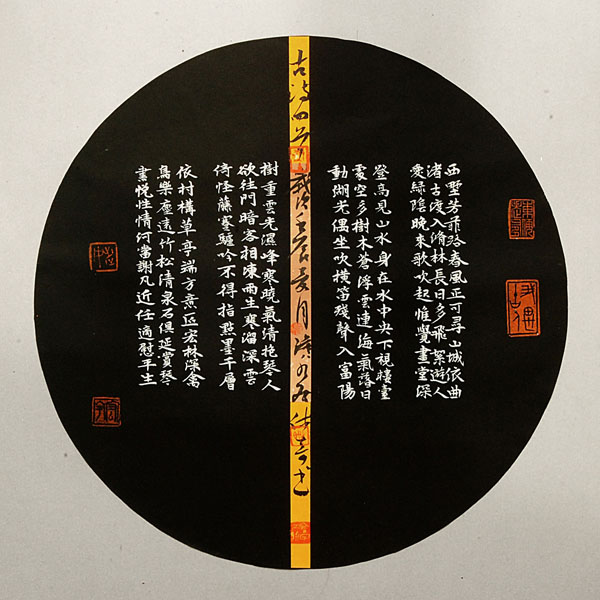 西墅芳菲路春風正可尋山城依曲
渚古渡入脩林長日多飛絮遊人
愛綠陰晚來歌吹起惟覺畫堂深
登高見山水身在水中央下視樓臺
處空多樹木蒼浮雲連海氣落日
動湖光偶坐吹橫笛殘聲入富陽
古詩四首歲壬辰夏月
樹重雲光濕峰寒曉氣清抱琴人
欲往門暗客相陳雨生寒溜深雲
倚怪藤蹇驢吟不得指點墨千層
依村構草亭端方意匠宏林深禽
鳥樂塵遠竹松清泉石俱延賞琴
書悅性情何當謝凡近任適慰平生